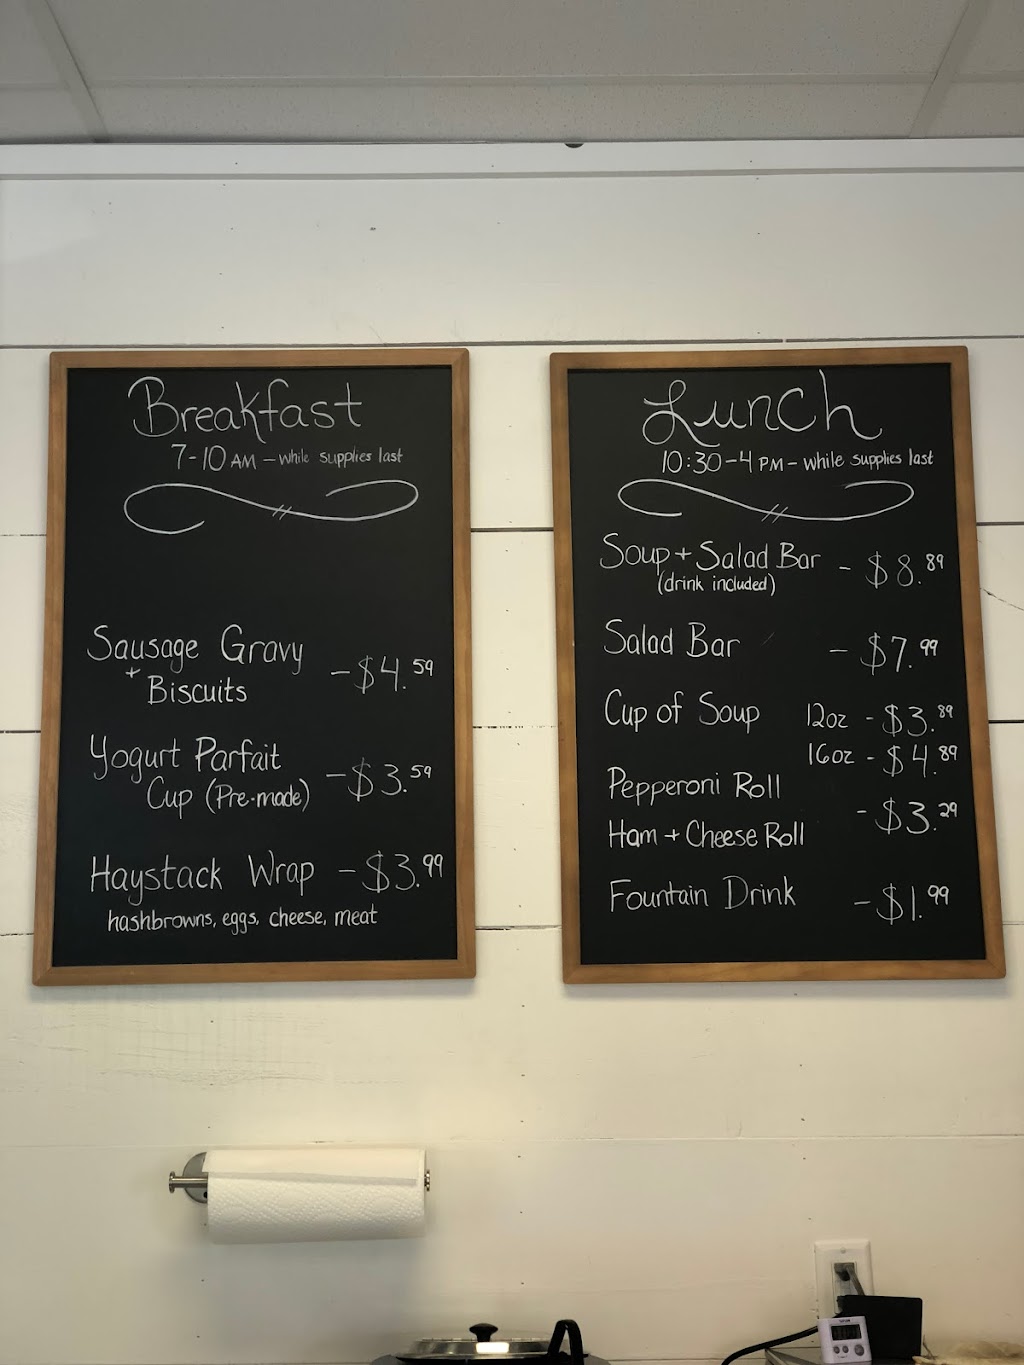 Breakfast
7-10 AM - while supplies last
Sausage Gravy
+ Biscuits - $4.59
Yogurt Parfait
Cup (Pre-made) - $3.59
Haystack Wrap - $3.99
hashbrowns, eggs, cheese, meat
Lunch
10:30-4 PM - while supplies last
Soup + Salad Bar - $8.89
(drink included)
Salad Bar - $7.99
Cup of Soup 12oz - $3.89
16oz - $4.89
Pepperoni Roll
- $3.29
Ham + Cheese Roll
Fountain Drink - $1.99